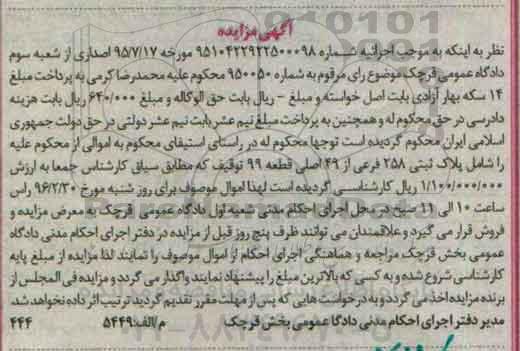 آگهی مزایده
نظر به اینکه به موجب اجرائیه شماره ۹۵۱۰۴۲۲۹۲۲۵۰۰۰۹۸ مورخه ۹۵/۷/۱۷ اصداری از شعبه سوم
دادگاه عمومی قرچک موضوع رای مرقوم به شماره ۹۵۰۰۵۰ محکوم علیه محمدرضا کرمی به پرداخت مبلغ
۱۴ سکه بهار آزادی بابت اصل خواسته و مبلغ - ریال بابت حق الوکاله و مبلغ ۶۴۰/۰۰۰ ریال بابت هزینه
دادرسی در حق محکوم له و همچنین به پرداخت مبلغ نیم عشر بابت نیم عشر دولتی در حق دولت جمهوری
اسلامی ایران محکوم گردیده است توجها محکوم له در راستای استیفای محکوم به اموالی از محکوم علیه
را شامل پلاک ثبتی ۲۵۸ فرعی از ۴۹ اصلی قطعه ۹۹ توقیف که مطابق سیاق کارشناس جمعا به ارزش
۱/۱۰۰/۰۰۰/۰۰۰ ریال کارشناسی گردیده است لهذا اموال موصوف برای روز شنبه مورخ ۹۶/۲/۳۰ راس
ساعت ۱۰ الی ۱۱ صبح در محل اجرای احکام مدنی شعبه اول دادگاه عمومی قرچک به معرض مزایده و
فروش قرار می گیرد و علاقمندان می توانند ظرف پنج روز قبل از مزایده در دفتر اجرای احکام مدنی دادگاه
عمومی بخش قرچک مراجعه و هماهنگی اجرای احکام از اموال موصوف را نمایند لذا مزایده از مبلغ پایه
کارشناسی شروع شده و به کسی که بالاترین مبلغ را پیشنهاد نمایند واگذار می گردد و مزایده فی المجلس از
برنده مزایده اخذ می گردد و به درخواست هایی که پس از مهلت مقرر تقدیم گردید ترتیب اثر داده نخواهد شد.
مدیر دفتر اجرای احکام مدنی دادگاه عمومی بخش قرچک م/الف:۵۴۴۹ ۴۴۴